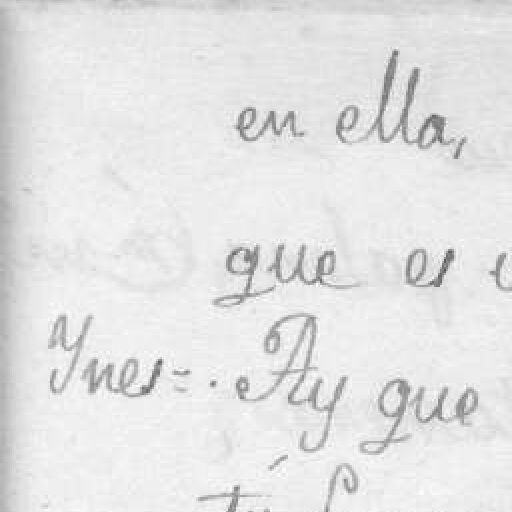 en ella,
que es
Ynes=. Ay que